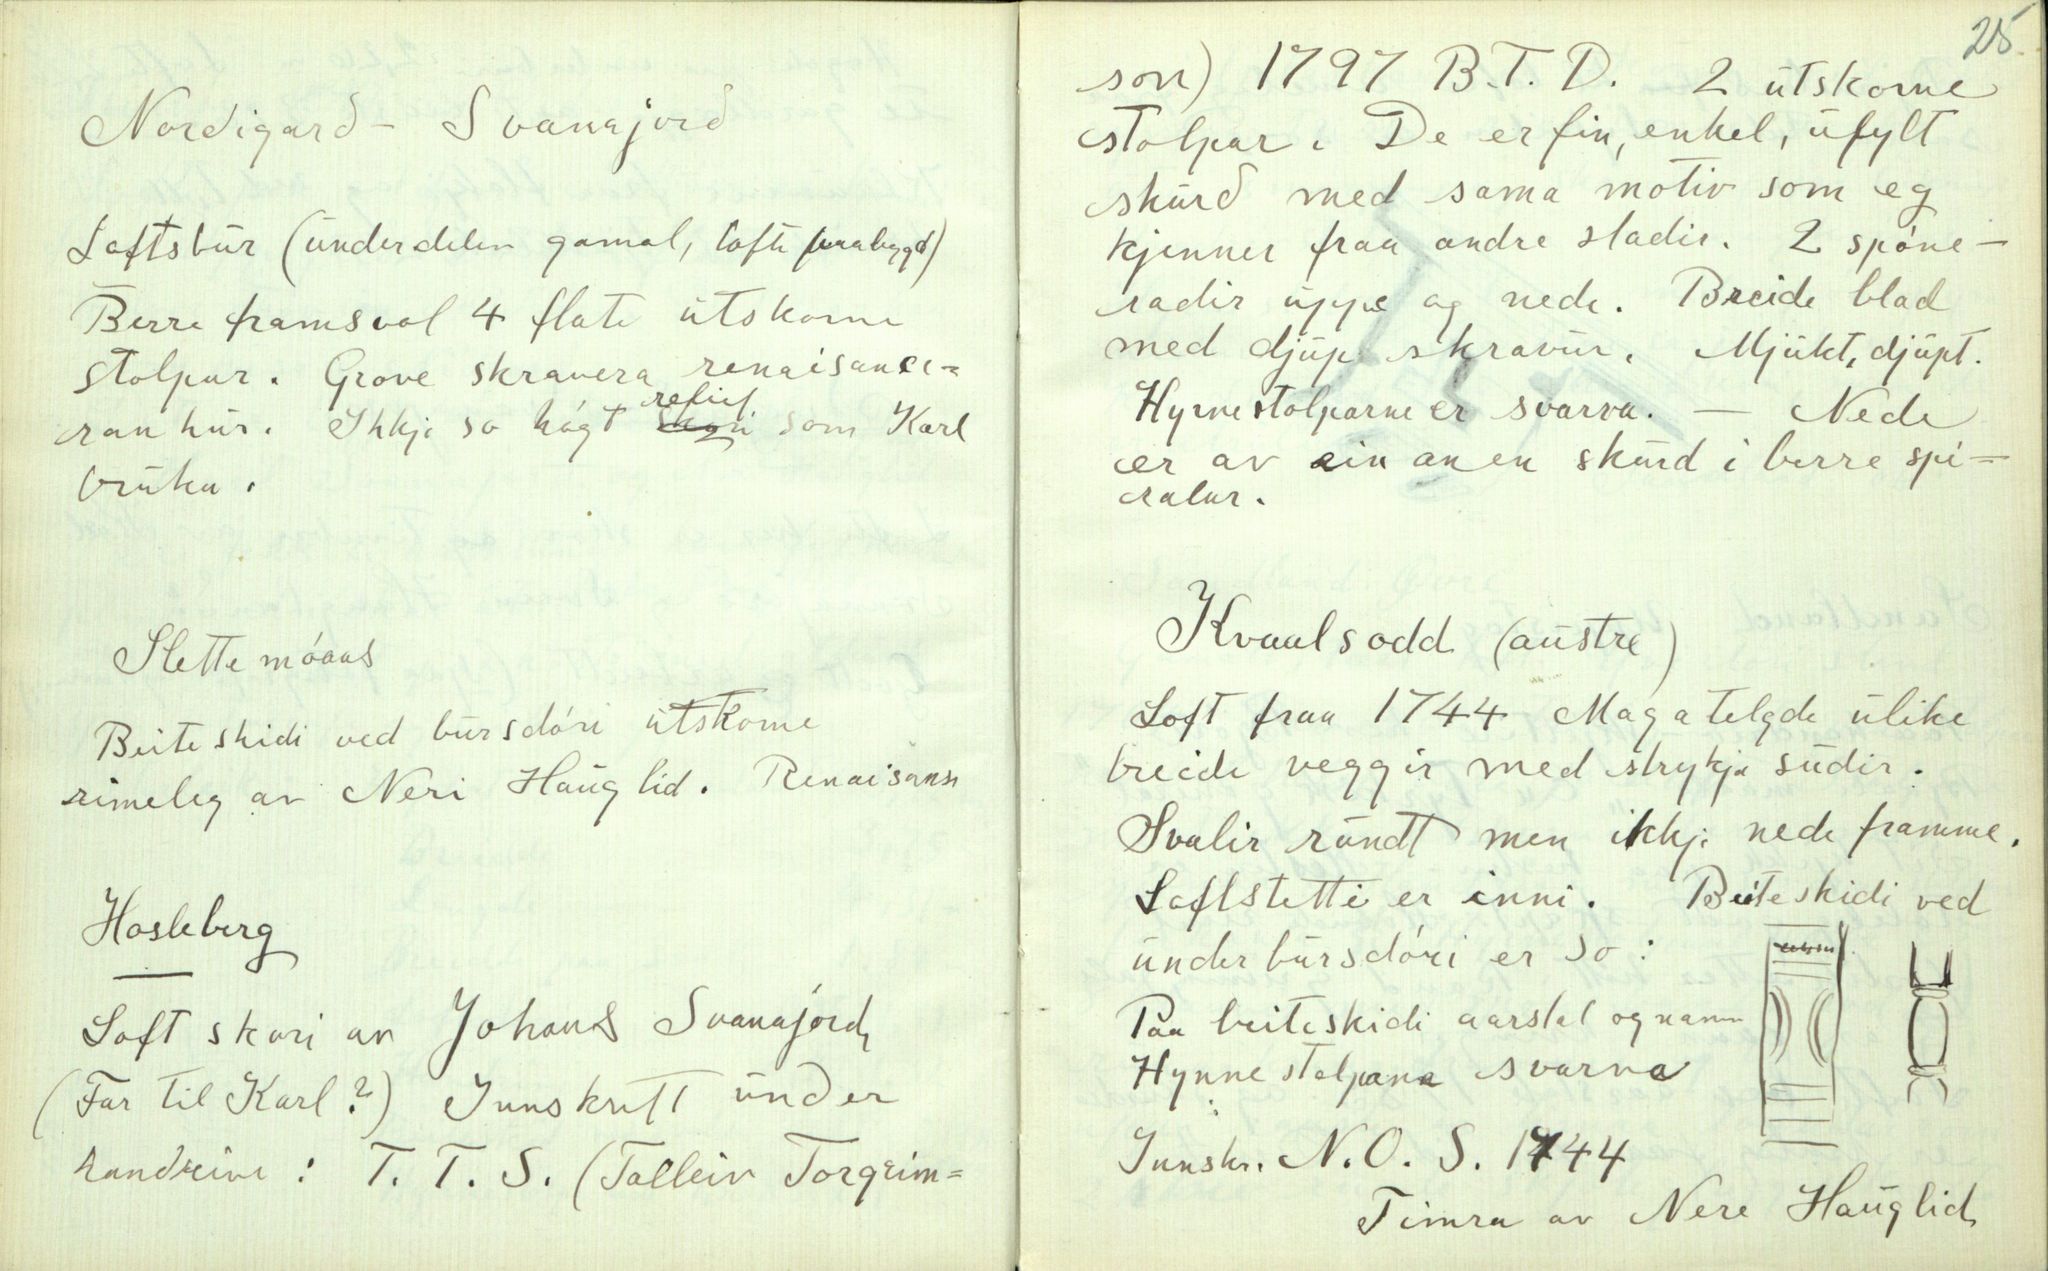 Nordigard - Svanajord
Loftsbur (underdelen gamal, lofte paabygd)
Berre framsval 4 flate utskorne
stolpar. Grove skravera renaisance-
rankur. Ikkje so högt relief som Karl
bruka.
Slettemóans
Beiteskidi ved bursdóri utskorne
rimeleg av Neri Hauglid. Renaisans
Hasleberg
Loft skori av Johans Svanajord,
(Far til Karl?) Innskrift under
handreive : T. T. S. (Talleiv Torgrim=
25.
son) 1797 B.T.D. 2 utskorne
stolpar. De er fin, enkel, ufylt
skurd med sama motiv som eg
kjenner fraa andre stadir. 2 spóne-
radir uppe og nede. Breide blad
med djup skravur. Mjukt, djupt.
Hyrnestolparne er svarva. — Nede
er av ein anen skurd i berre spi-
ralar.
Kvaalsodd (austre)
Loft fraa 1744 Magatelgde ulike
breide veggir med strykja sudir.
Svalir rundt men ikkje nede framme.
Loftstette er inni. Beiteskidi ved
under bursdóri er so :
Paa beiteskidi aarstal og namn
Hynnestolpana svarva
Innskr. N.O. S. 1744
Timra av Nere Hauglid